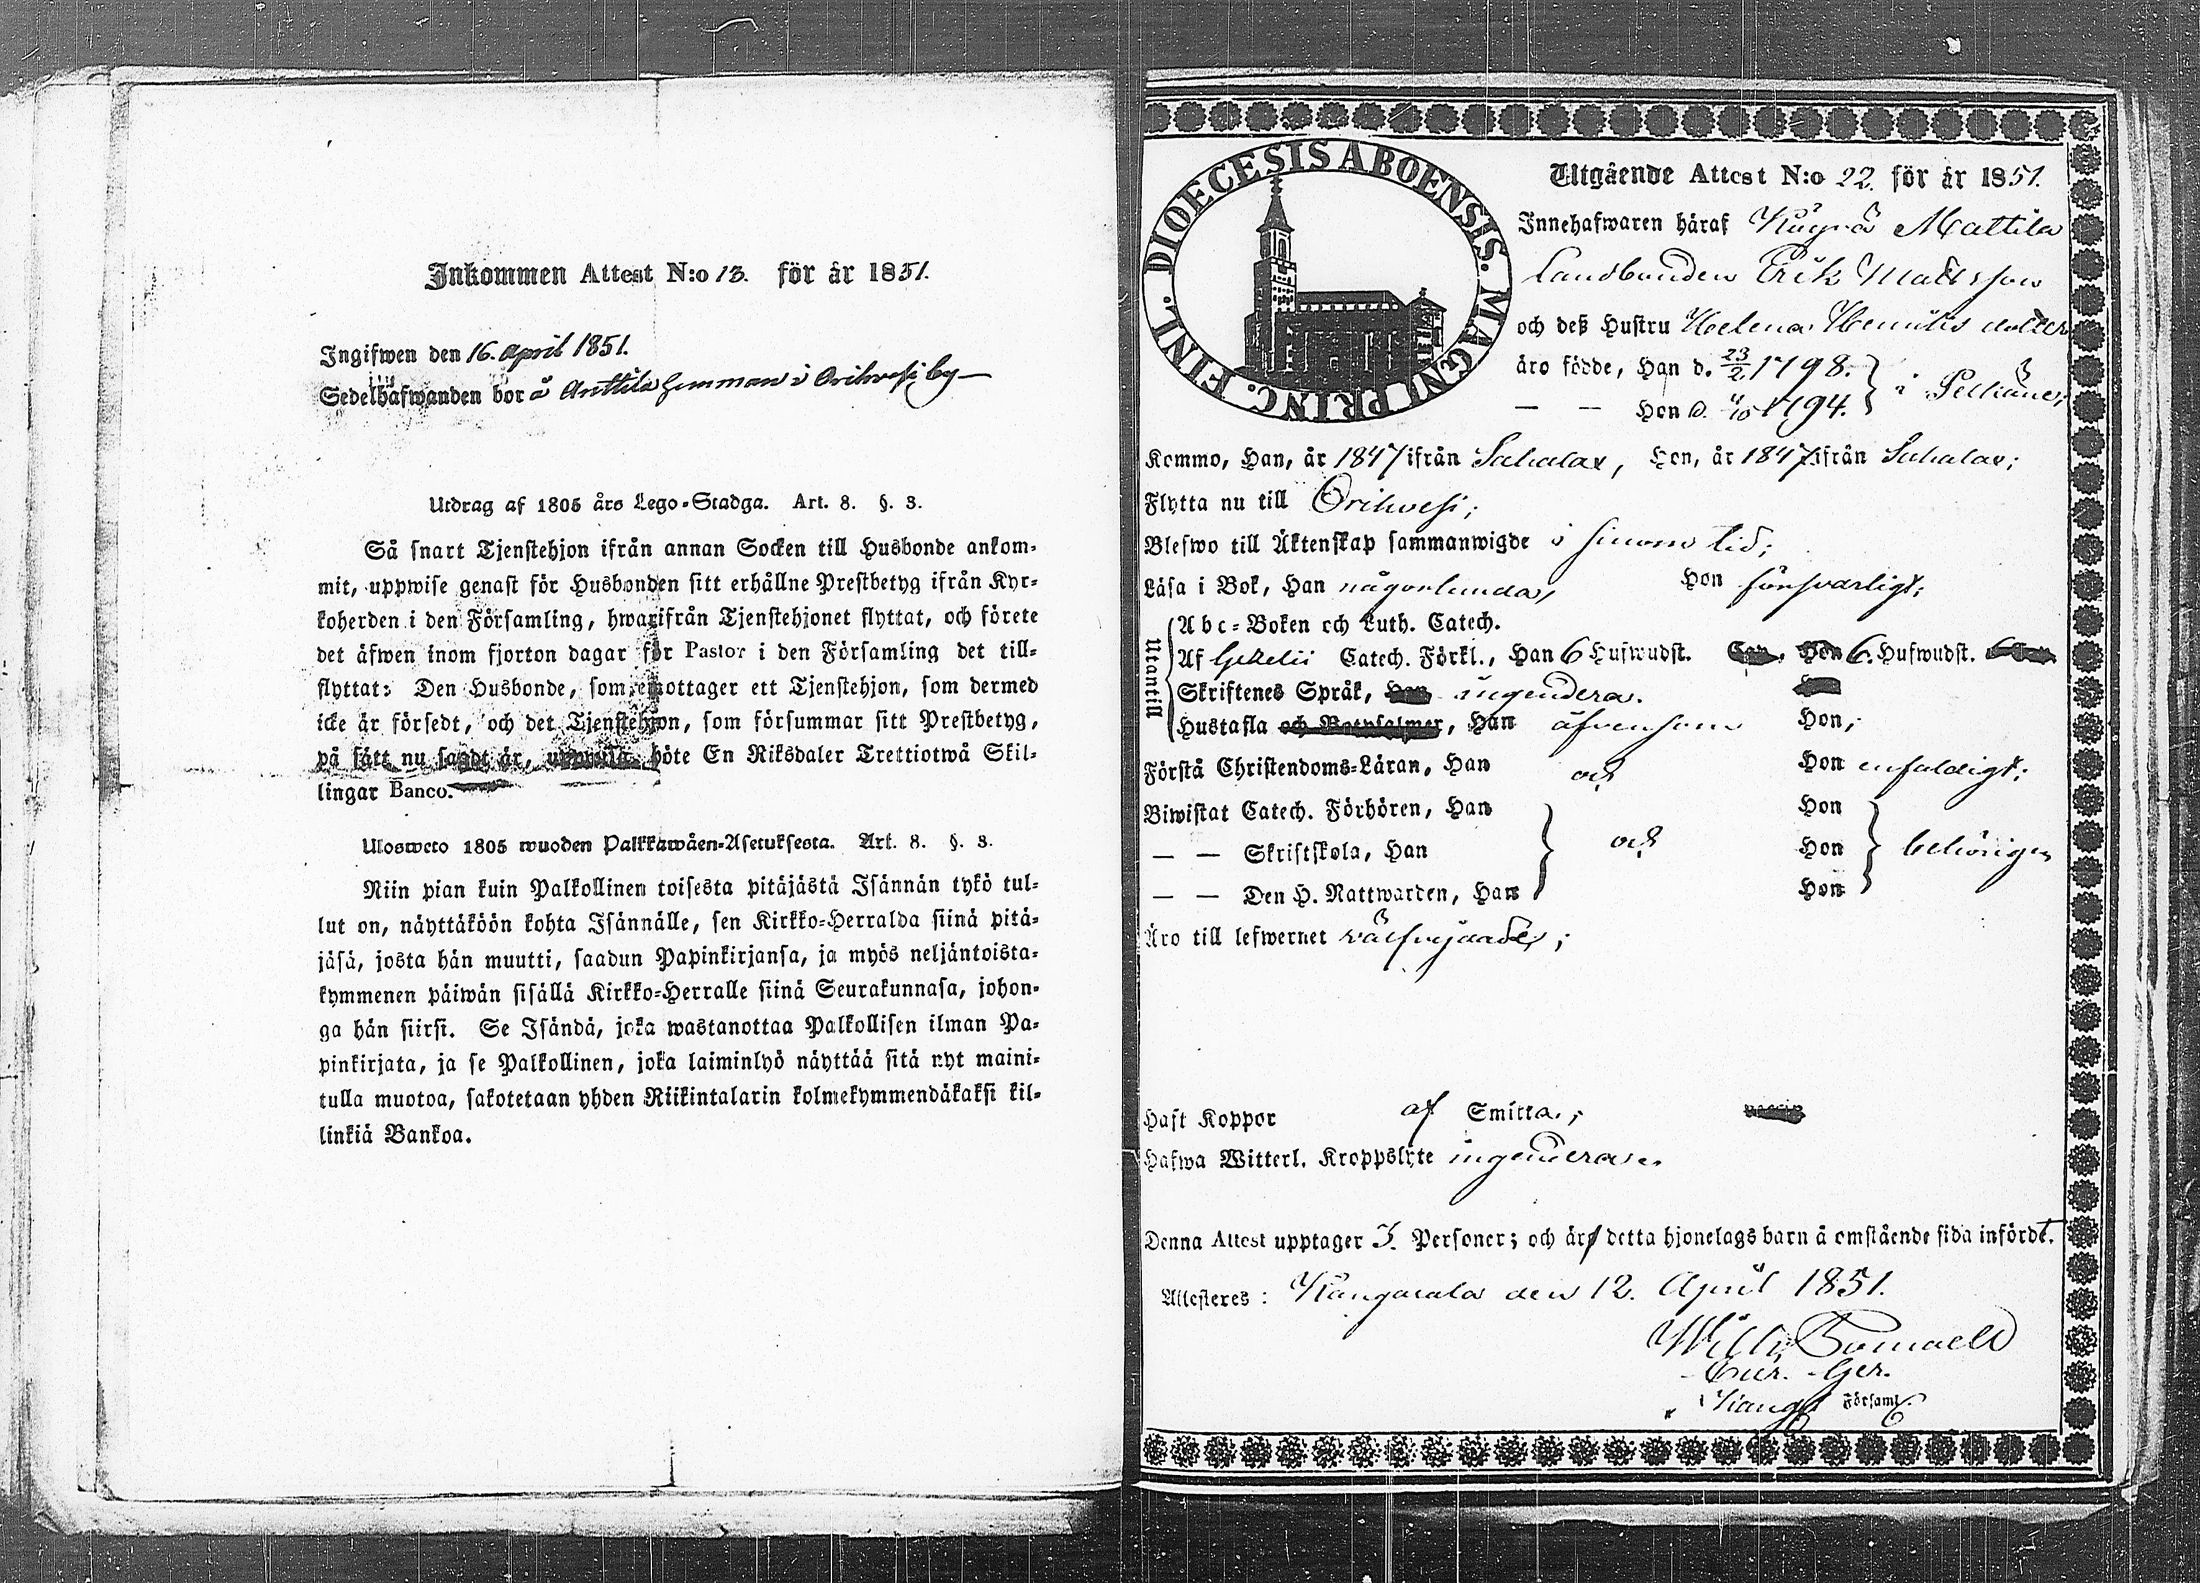 Inkommen Attest N:o 13. för år 1851.
Ingifwen den 16. April 1851.
Sedelhafwanden bor å Anttila hemman i Orihvesi by
Utdrag af 1805 års Lego-Stadga. Art. 8. §. 3.
Så snart Tjenstehjon ifrån annan Socken till Husbonde ankom-
mit, uppwise genast för Husbonden sitt erhållne Prestbetyg ifrån Kyr-
koherden i den Församling, hwarifrån Tjenstehjonet flyttat, och förete
det äfwen inom fjorton dagar för Pastor i den Församling det till-
flyttat: Den Husbonde, som emottager ett Tjenstehjon, som dermed
icke är försedt, och det Tjenstehjon, som försummar sitt Prestbetyg,
på sätt nu sagdt är, uppwisa, böte En Riksdaler Trettiotwå Skil-
lingar Banco.
Ulosweto 1805 wuoden Palkkawäen-Asetuksesta. Art. 8. §. 3.
Niin pian kuin Palkollinen toisesta pitäjästä Isännän tykö tul-
lut on, näyttäköön kohta Isännälle, sen Kirkko-Herralda siinä pitä-
jäsä, josta hän muutti, saadun Papinkirjansa, ja myös neljäntoista-
kymmenen päiwän sisällä Kirkko-Herralle siinä Seurakunnasa, johon-
ga hän siirsi. Se Isändä, joka wastanottaa Palkollisen ilman Pa-
pinkirjata, ja se Palkollinen, joka laiminlyö näyttää sitä nyt maini-
tulla muotoa, sakotetaan yhden Riikintalarin kolmekymmendäkaksi kil-
linkiä Bankoa.
DIOECESIS ABOENSIS. MAGNI PRINC. FINL.
Utgående Attest N:o 22. för år 1851.
Innehafwaren häraf Mattila
Landbonden Erik Mattsson
och deß Hustru Helena Henriksdotter
äro födde, Han d. 23/2 1798.
— — Hon d. 4/10 1794. i Pelkäne;
Kommo, Han, år 1847 ifrån Sahalax, Hon, år 1847 ifrån Sahalax;
Flytta nu till Orihvesi;
Blefwo till Äktenskap sammanwigde i sinom tid;
Läsa i Bok, Han någorlunda, Hon försvarligt;
Utantill
Abc-Boken och Luth. Catech.
Af Gezelii Catech. Förkl., Han 6 Hufwudst. Hon 6. Hufwudst.
Skriftenes Språk, ingendera.
Hustafla och Botpsalmer, Han äfvensom Hon;
Förstå Christendoms-Läran, Han och Hon enfaldigt;
Biwistat Catech. Förhören, Han Hon
— — Skriftskola, Han och Hon behörigen
— — Den H. Nattwarden, Han Hon
Äro till lefwernet välfrejdade;
Haft Koppor af Smitta;
Hafwa Witterl. Kroppslyte ingendera.
Denna Attest upptager 3. Personer; och är detta hjonelags barn å omstående sida infördt.
Attesteres: Kangasala den 12. April 1851.
Cur. Ger.
Kang. Församl.